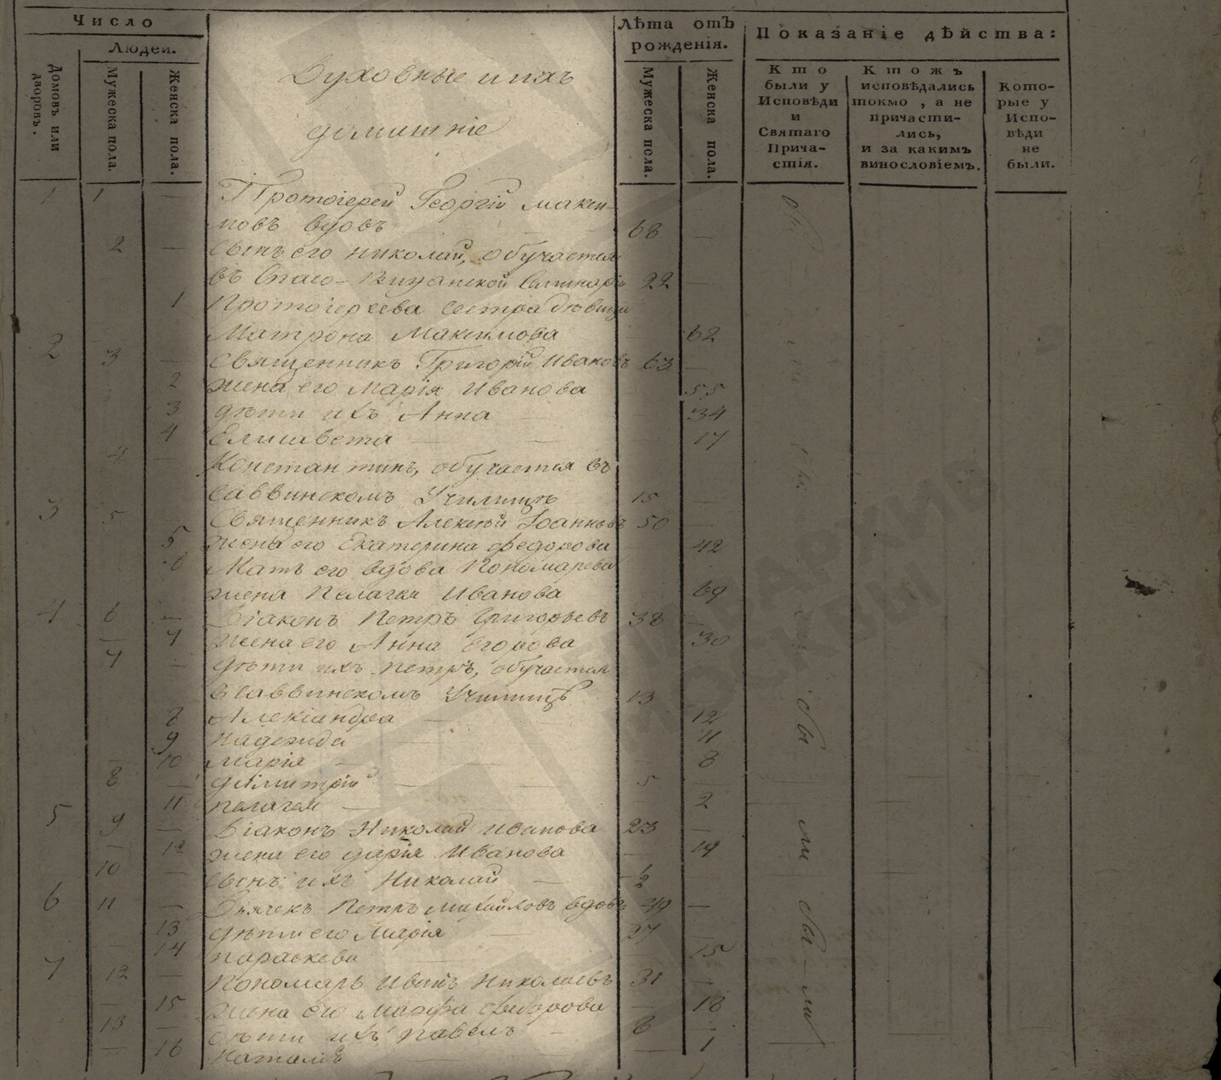 Число
Людей.
Домовъ или дворовъ.
Мужеска пола.
Женска пола.
Лѣта отъ рожденія.
Мужеска пола.
Женска пола.
Показаніе дѣйства:
Кто были у Исповѣди и Святаго Причастія.
Ктожъ исповѣдались токмо, а не причастились, и за какимъ винословіемъ.
Которые у Исповѣди не были.
Духовные и ихъ
домашніе
1 1 — Протоіерей Георгій Макси-
мовъ вдовъ 68 —
2 — Сынъ его Николай, обучается
въ Спасо-Виѳанской Семинаріи 22 —
1 Протоіереева сестра дѣвица
Матрона Максимова 62
2 3 — Священникъ Григорій Ивановъ 63 —
2 жена его Марія Иванова 55
3 дѣти ихъ Анна 34
4 Елисавета 17
4 — Константинъ, обучается въ
Саввинскомъ Училищѣ 15 —
3 5 Священникъ Алексѣй Іоанновъ 50 —
5 жена его Екатерина Ѳедорова 42
6 Мать его вдова Пономарева
жена Пелагея Иванова 69
4 6 — Діаконъ Петръ Григорьевъ 38 —
7 жена его Анна Егорова 30
7 — дѣти ихъ Петръ, обучается
в Саввинскомъ Училищѣ 13
8 Александра 12
9 Надежда 11
10 Марія 8
8 — Димитрій 5
11 Пелагея 2
5 9 — Діаконъ Николай Иванова 23 —
12 жена его Дарія Иванова 19
10 — Сынъ ихъ Николай
6 11 — Дьячекъ Петръ Михайловъ вдовъ 49 —
13 дѣти его Марія 27
14 Параскева 15
7 12 — Пономарь Иванъ Николаевъ 31
15 жена его Марфа 18
13 — дѣти ихъ Павелъ 6
16 Наталія 1